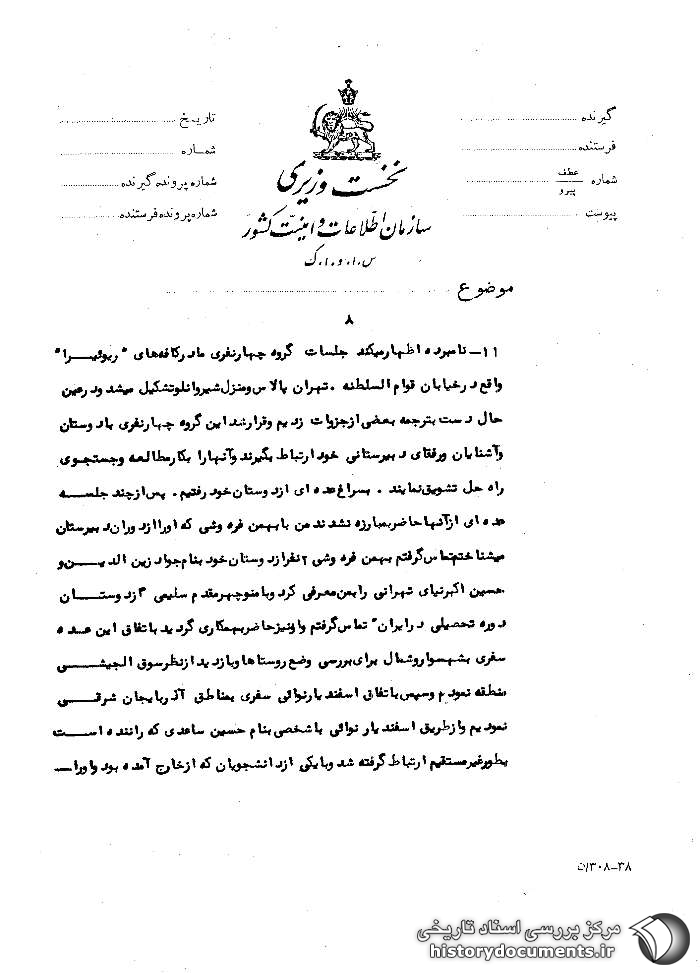 گیرنده
فرستنده
شماره عطف پیرو
پیوست
تاریخ
شماره
شماره پرونده گیرنده
شماره پرونده فرستنده
نخست وزیری
سازمان اطلاعات و امنیت کشور
س.ا.و.ا.ک
موضوع
۸
۱۱- نامبرده اظهار میکند جلسات گروه چهار نفری ما در کافه های "ریوئیرا"
واقع در خیابان قوام السلطنه . تهران پالاس و منزل شیروانلو تشکیل میشد و در عین
حال دست بترجمه بعضی از جزوات زدیم و قرار شد این گروه چهار نفری با دوستان
و آشنایان و رفقای دبیرستانی خود ارتباط بگیرند و آنها را بکار مطالعه و جستجوی
راه حل تشویق نمایند . بسراغ عده ای از دوستان خود رفتیم . پس از چند جلسه
عده ای از آنها حاضر بمبارزه نشدند من با بهمن فره وشی که او را از دوران دبیرستان
میشناختم تماس گرفتم بهمن فره وشی ۲ نفر از دوستان خود بنام جواد زین الدین و
حسین اکبرنیای تهرانی را بمن معرفی کرد و با منوچهر مقدم سلیمی "از دوستان
دوره تحصیلی در ایران" تماس گرفتم و او نیز حاضر بهمکاری گردید باتفاق این عده
سفری بشهسوار و شمال برای بررسی وضع روستاها و بازدید از نظر سوق الجیشی
منطقه نمودم و سپس باتفاق اسفندیار نوائی سفری بمناطق آذربایجان شرقی
نمودیم و از طریق اسفندیار نوائی با شخصی بنام حسین ساعدی که راننده است
بطور غیر مستقیم ارتباط گرفته شد و با یکی از دانشجویان که از خارج آمده بود و اورا-
۳۰۸-۳۸/ت
مرکز بررسی اسناد تاریخی
historydocuments.ir